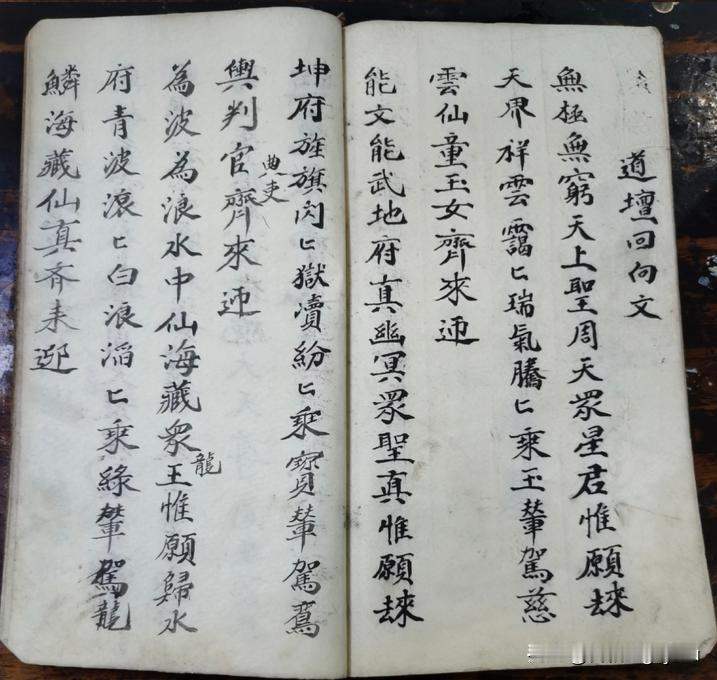 道壇回向文
無極無窮天上聖周天眾星君惟願逨
天界祥雲靄匕瑞氣騰匕乘玉輦駕慈
雲仙童玉女齊來迎
能文能武地府真幽冥眾聖真惟願逨
坤府旌旗閃匕獄瀆紛匕乘寶輦駕鸞
輿判官典吏齊來迎
為波為浪水中仙海藏眾龍王惟願歸水
府青波滾匕白浪滔匕乘綠輦駕龍
鱗海藏仙真齐来迎